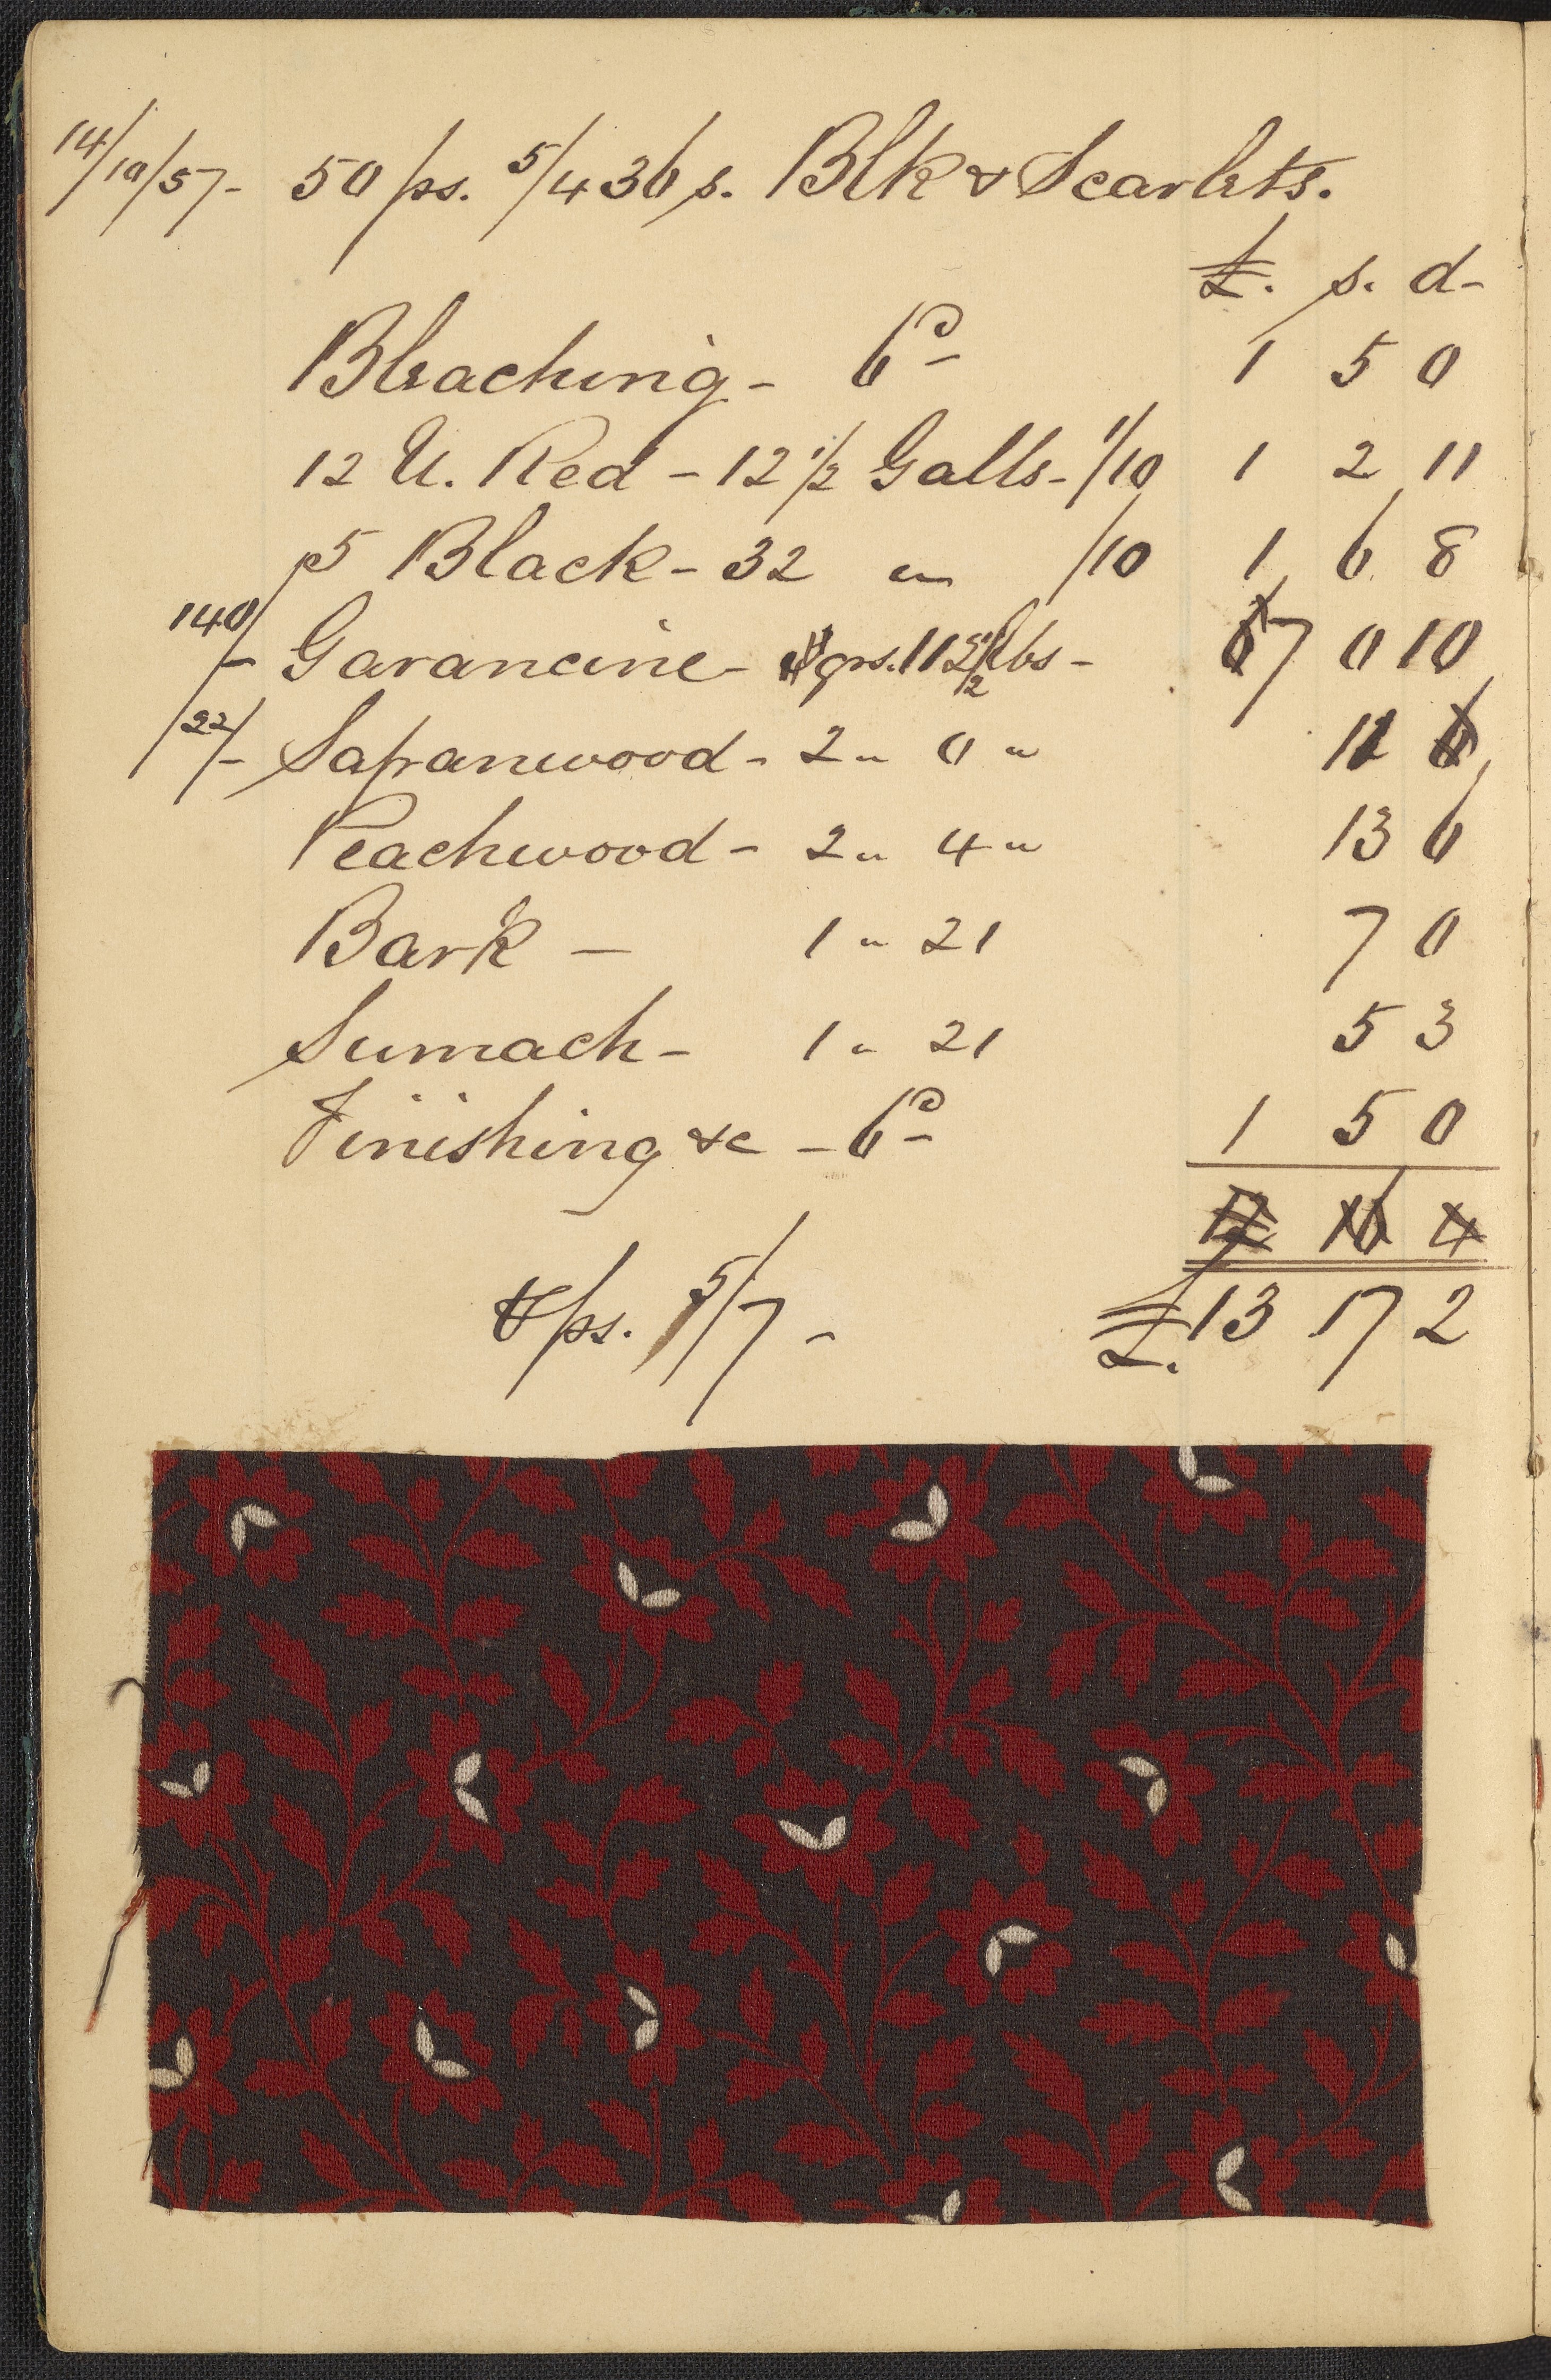 14/10/57- 50 ps. 5/4 36s. Blk & Scarlets.
£. s. d-
Bleaching - 6d- 1 5 0
12 U. Red - 12 1/2 Galls - 1/10 1 2 11
p5 Black - 32 " /10 1 6 8
140/- Garancine - qrs. 112 1/2 lbs - 7 0 10
22/- Sapanwood - 2 " 0 " 11
Peachwood - 2 " 4 " 13 6
Bark - 1 " 21 7 0
Sumach - 1 " 21 5 3
Finishing &c - 6d- 1 5 0
12 16 4
ps. 5/7 - £. 13 17 2